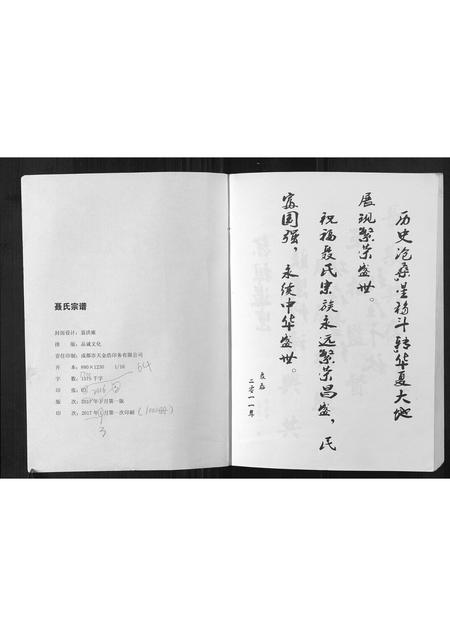 聂氏宗谱
封面设计：聂洪雍
排　版：品诚文化
责任印制：成都市天金浩印务有限公司
开　本：880×1230　1/16
字　数：1375千字
印　张：
版　次：2017年3月第一版
印　次：2017年　月第一次印刷
64
3
历史沧桑星移斗转华夏大地
展现繁荣盛世。
祝福聂氏宗族永远繁荣昌盛，民
富国强，永续中华盛世。
二零一一年